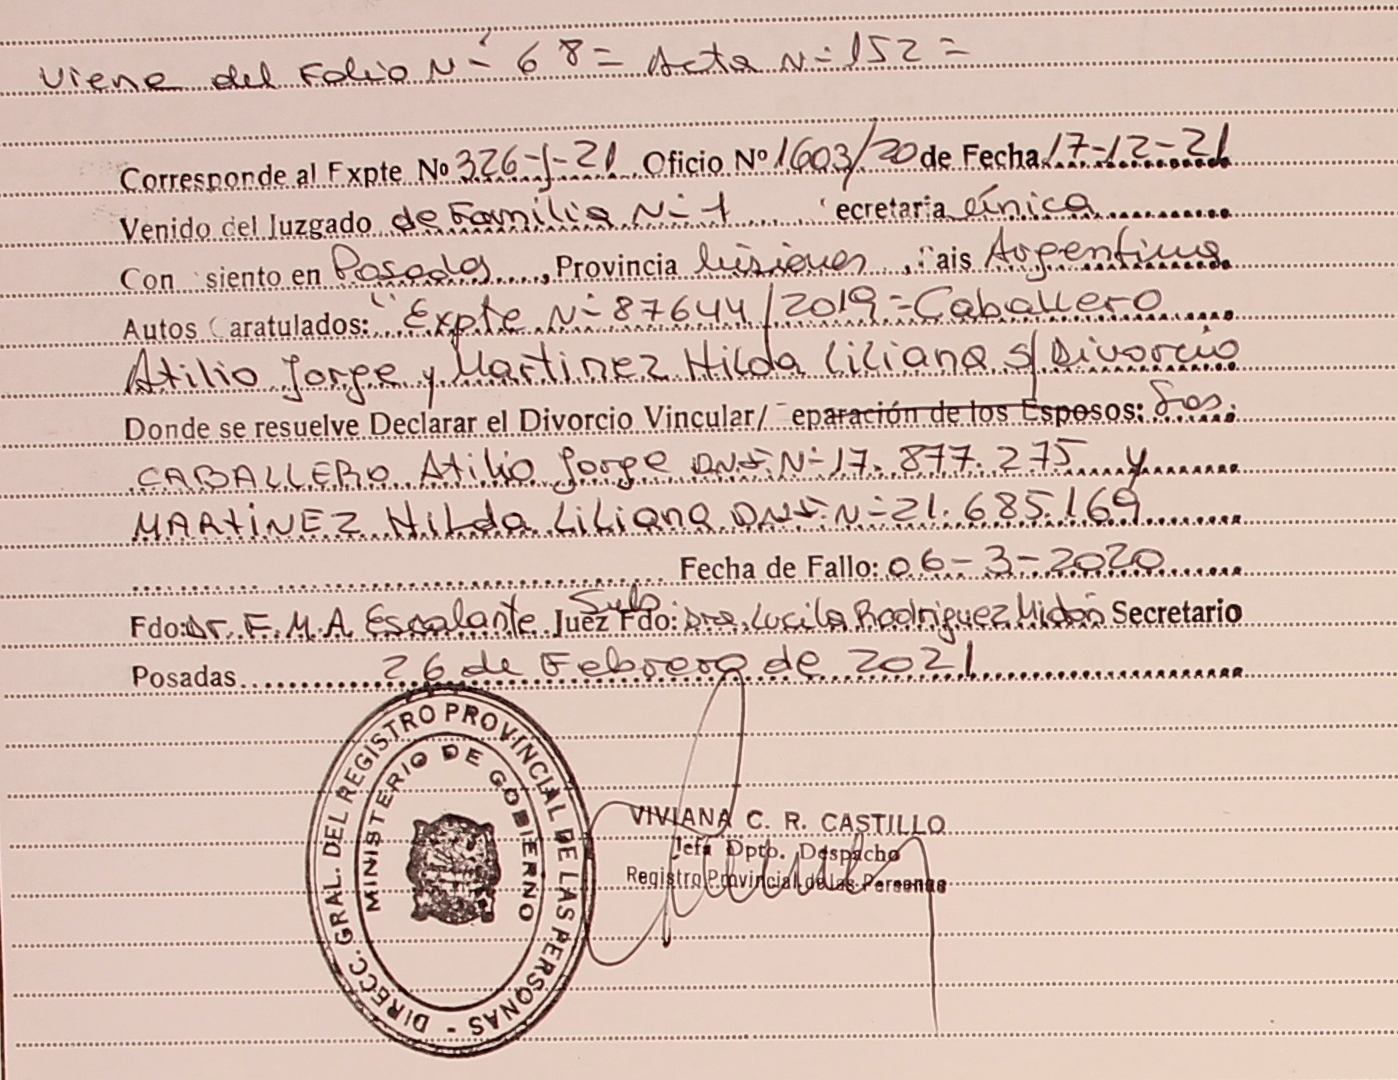 Viene del Folio N- 68= Acta N-152=
Corresponde al Expte No 326-J-21 Oficio Nº 1603/20 de Fecha 17-12-21
Venido del Juzgado de Familia N-1 ecretaria única
Con siento en Posadas, Provincia Misiones, ais Argentina
Autos Caratulados: "Expte N-87644/2019-Caballero
Atilio Jorge y Martinez Hilda Liliana s/Divorcio
Donde se resuelve Declarar el Divorcio Vincular/ eparación de los Esposos: Sres:
CABALLERO Atilio Jorge DNI.N-17.877.275 y
MARTINEZ Hilda Liliana DNI.N-21.685.169
Fecha de Fallo: 06-3-2020
Fdo: Dr. E.M.A Escalante Juez Subs Fdo: Dra. Lucila Rodriguez Midon Secretario
Posadas 26 de Febrero de 2021
DIRECC. GRAL. DEL REGISTRO PROVINCIAL DE LAS PERSONAS -
MINISTERIO DE GOBIERNO
VIVIANA C. R. CASTILLO
Jefa Dpto. Despacho
Registro Provincial de las Personas